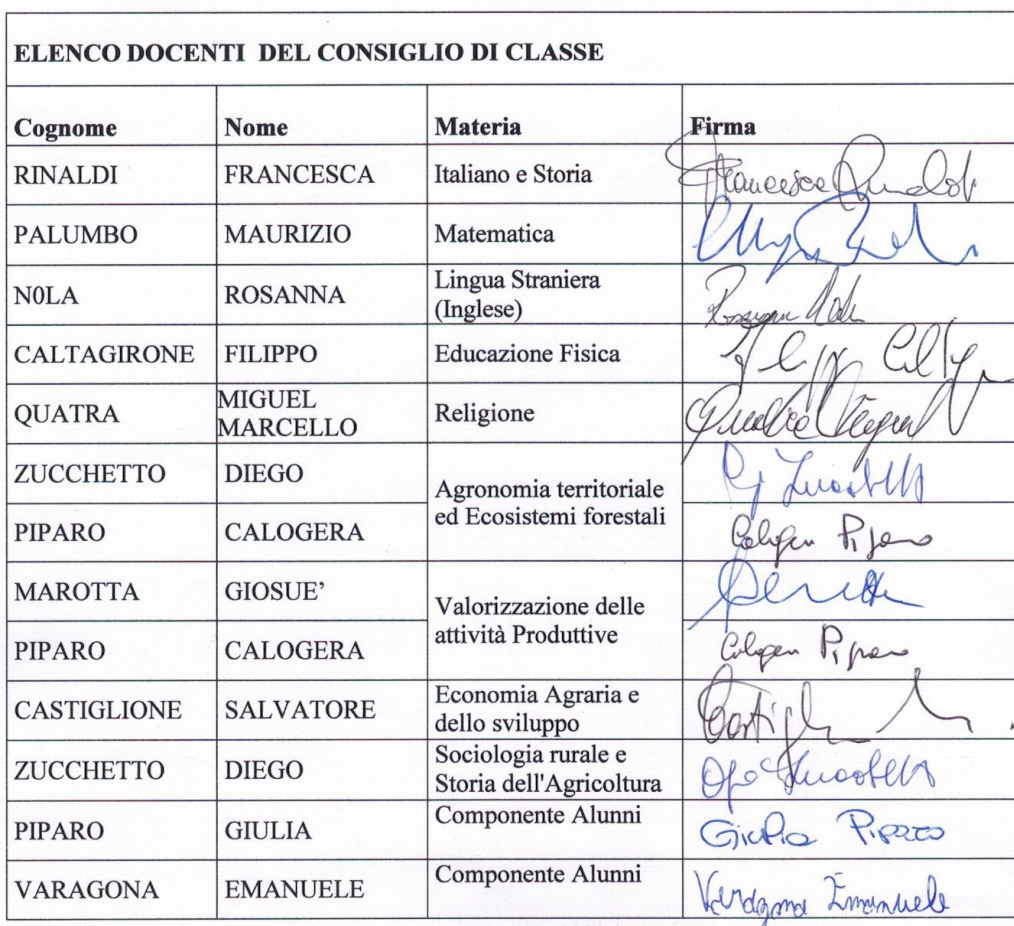 ELENCO DOCENTI DEL CONSIGLIO DI CLASSE
Cognome Nome Materia Firma
RINALDI FRANCESCA Italiano e Storia Francesca Rinaldi
PALUMBO MAURIZIO Matematica
N0LA ROSANNA Lingua Straniera
(Inglese) Rosanna Nola
CALTAGIRONE FILIPPO Educazione Fisica
QUATRA MIGUEL
MARCELLO Religione
ZUCCHETTO DIEGO Agronomia territoriale
ed Ecosistemi forestali
PIPARO CALOGERA Calogera Piparo
MAROTTA GIOSUE’ Valorizzazione delle
attività Produttive
PIPARO CALOGERA Calogera Piparo
CASTIGLIONE SALVATORE Economia Agraria e
dello sviluppo
ZUCCHETTO DIEGO Sociologia rurale e
Storia dell'Agricoltura
PIPARO GIULIA Componente Alunni Giulia Piparo
VARAGONA EMANUELE Componente Alunni Varagona Emanuele